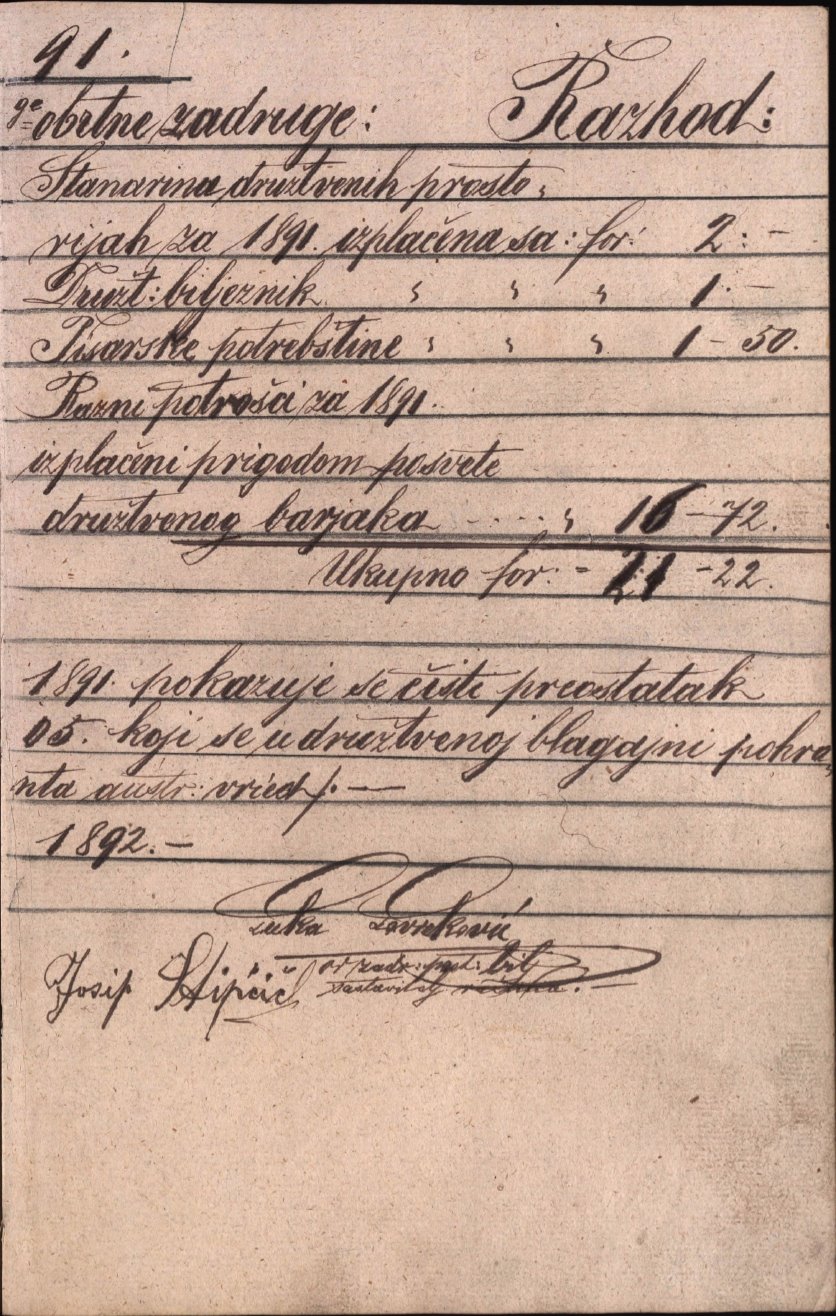 91.
ge obrtne zadruge: Razhod:
Stanarina družtvenih prosto„
rijah za 1891. izplaćena sa: for: 2:–
Družt: biljeznik „ „ „ 1.–
Pisarske potrebštine „ „ „ 1–50.
Razni potrošci za 1891.
izplaćeni prigodom posvete
družtvenog barjaka ..... „ 16–72.
Ukupno for:– 21–22.
1891. pokazuje se čisti preostatak
05. koji se u družtvenoj blagajni pohra„
nta austr: vried/:—
1892.–
Luka Lovreković
Josip Stipčić obr zadr: bilj
sastavitelj računa:–